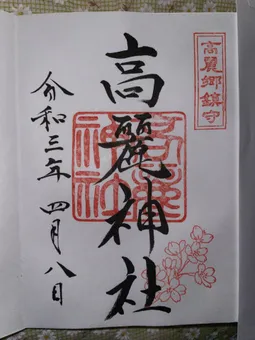 高麗郷鎮守
高麗神社
高麗神社
令和三年 四月八日